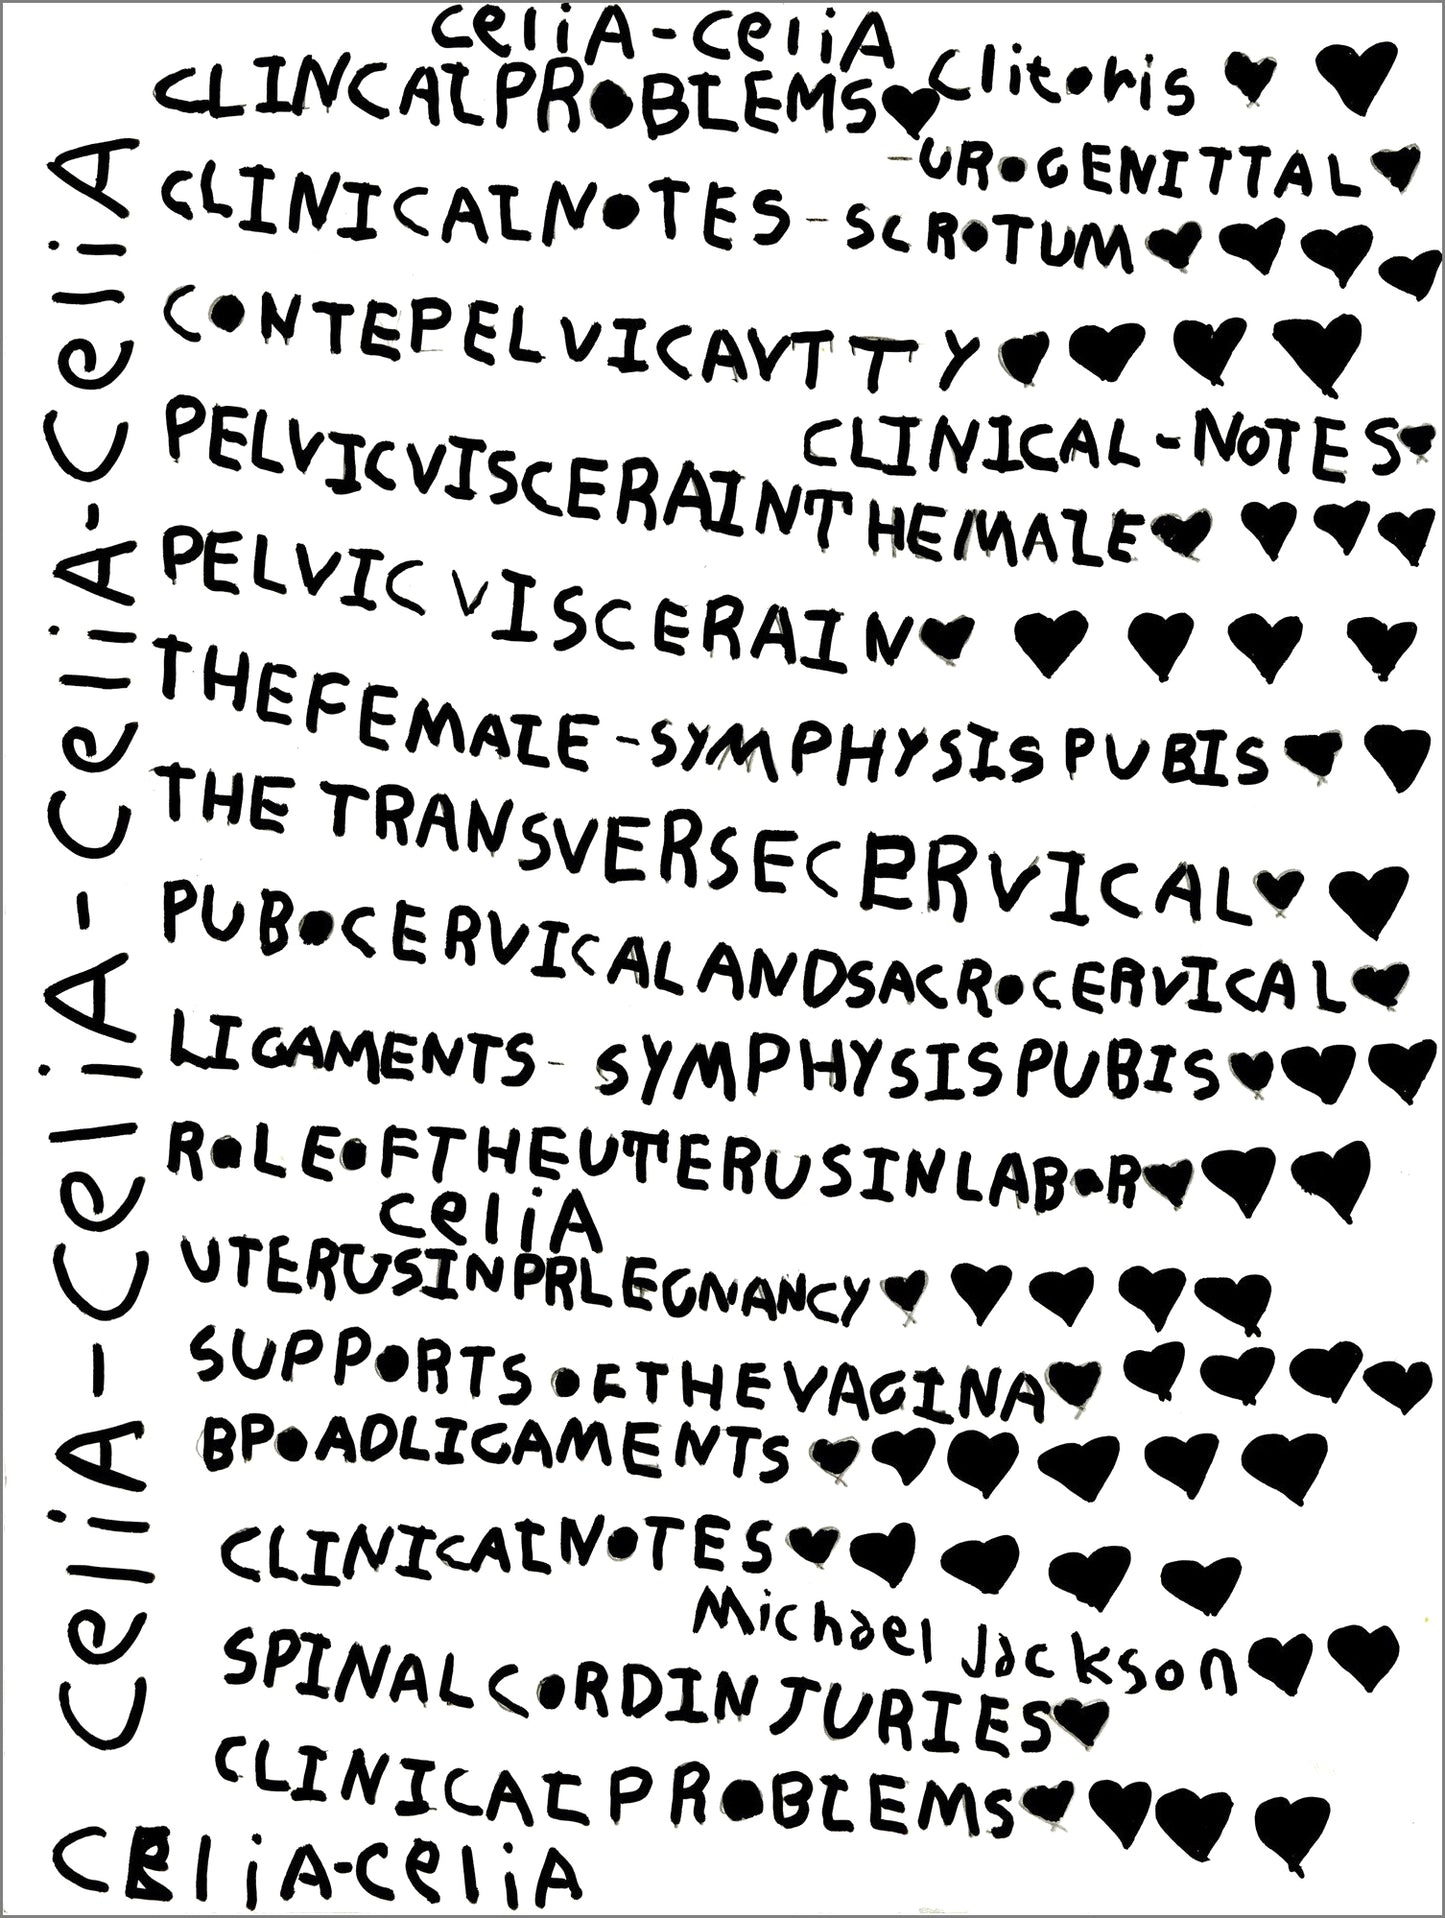 celiA-celiA
CLINCALPROBLEMS♥Clitoris ♥ ♥
-UROGENITTAL♥
CLINICALNOTES-SCROTUM♥♥♥♥
CONTEPELVICAVTTY♥♥♥♥
CLINICAL-NOTES♥
PELVICVISCERAINTHEMALE♥♥♥♥
PELVIC VISCERAIN♥♥♥♥♥
THEFEMALE-SYMPHYSIS PUBIS♥♥
THE TRANSVERSECERVICAL♥♥
PUBOCERVICALANDSACROCERVICAL♥
LIGAMENTS- SYMPHYSISPUBIS♥♥♥
ROLEOFTHEUTERUSINLABOR♥♥♥
celiA
UTERUSINPRLEGNANCY♥♥♥♥♥
SUPPORTS OFTHEVAGINA♥♥♥♥♥
BPOADLIGAMENTS♥♥♥♥♥♥
CLINICALNOTES♥♥♥♥♥
Michael Jackson♥♥
SPINALCORDINJURIES♥
CLINICALPROBLEMS♥♥♥♥
CEliA-celiA
celiA-CeliA-CeliA-CeliA